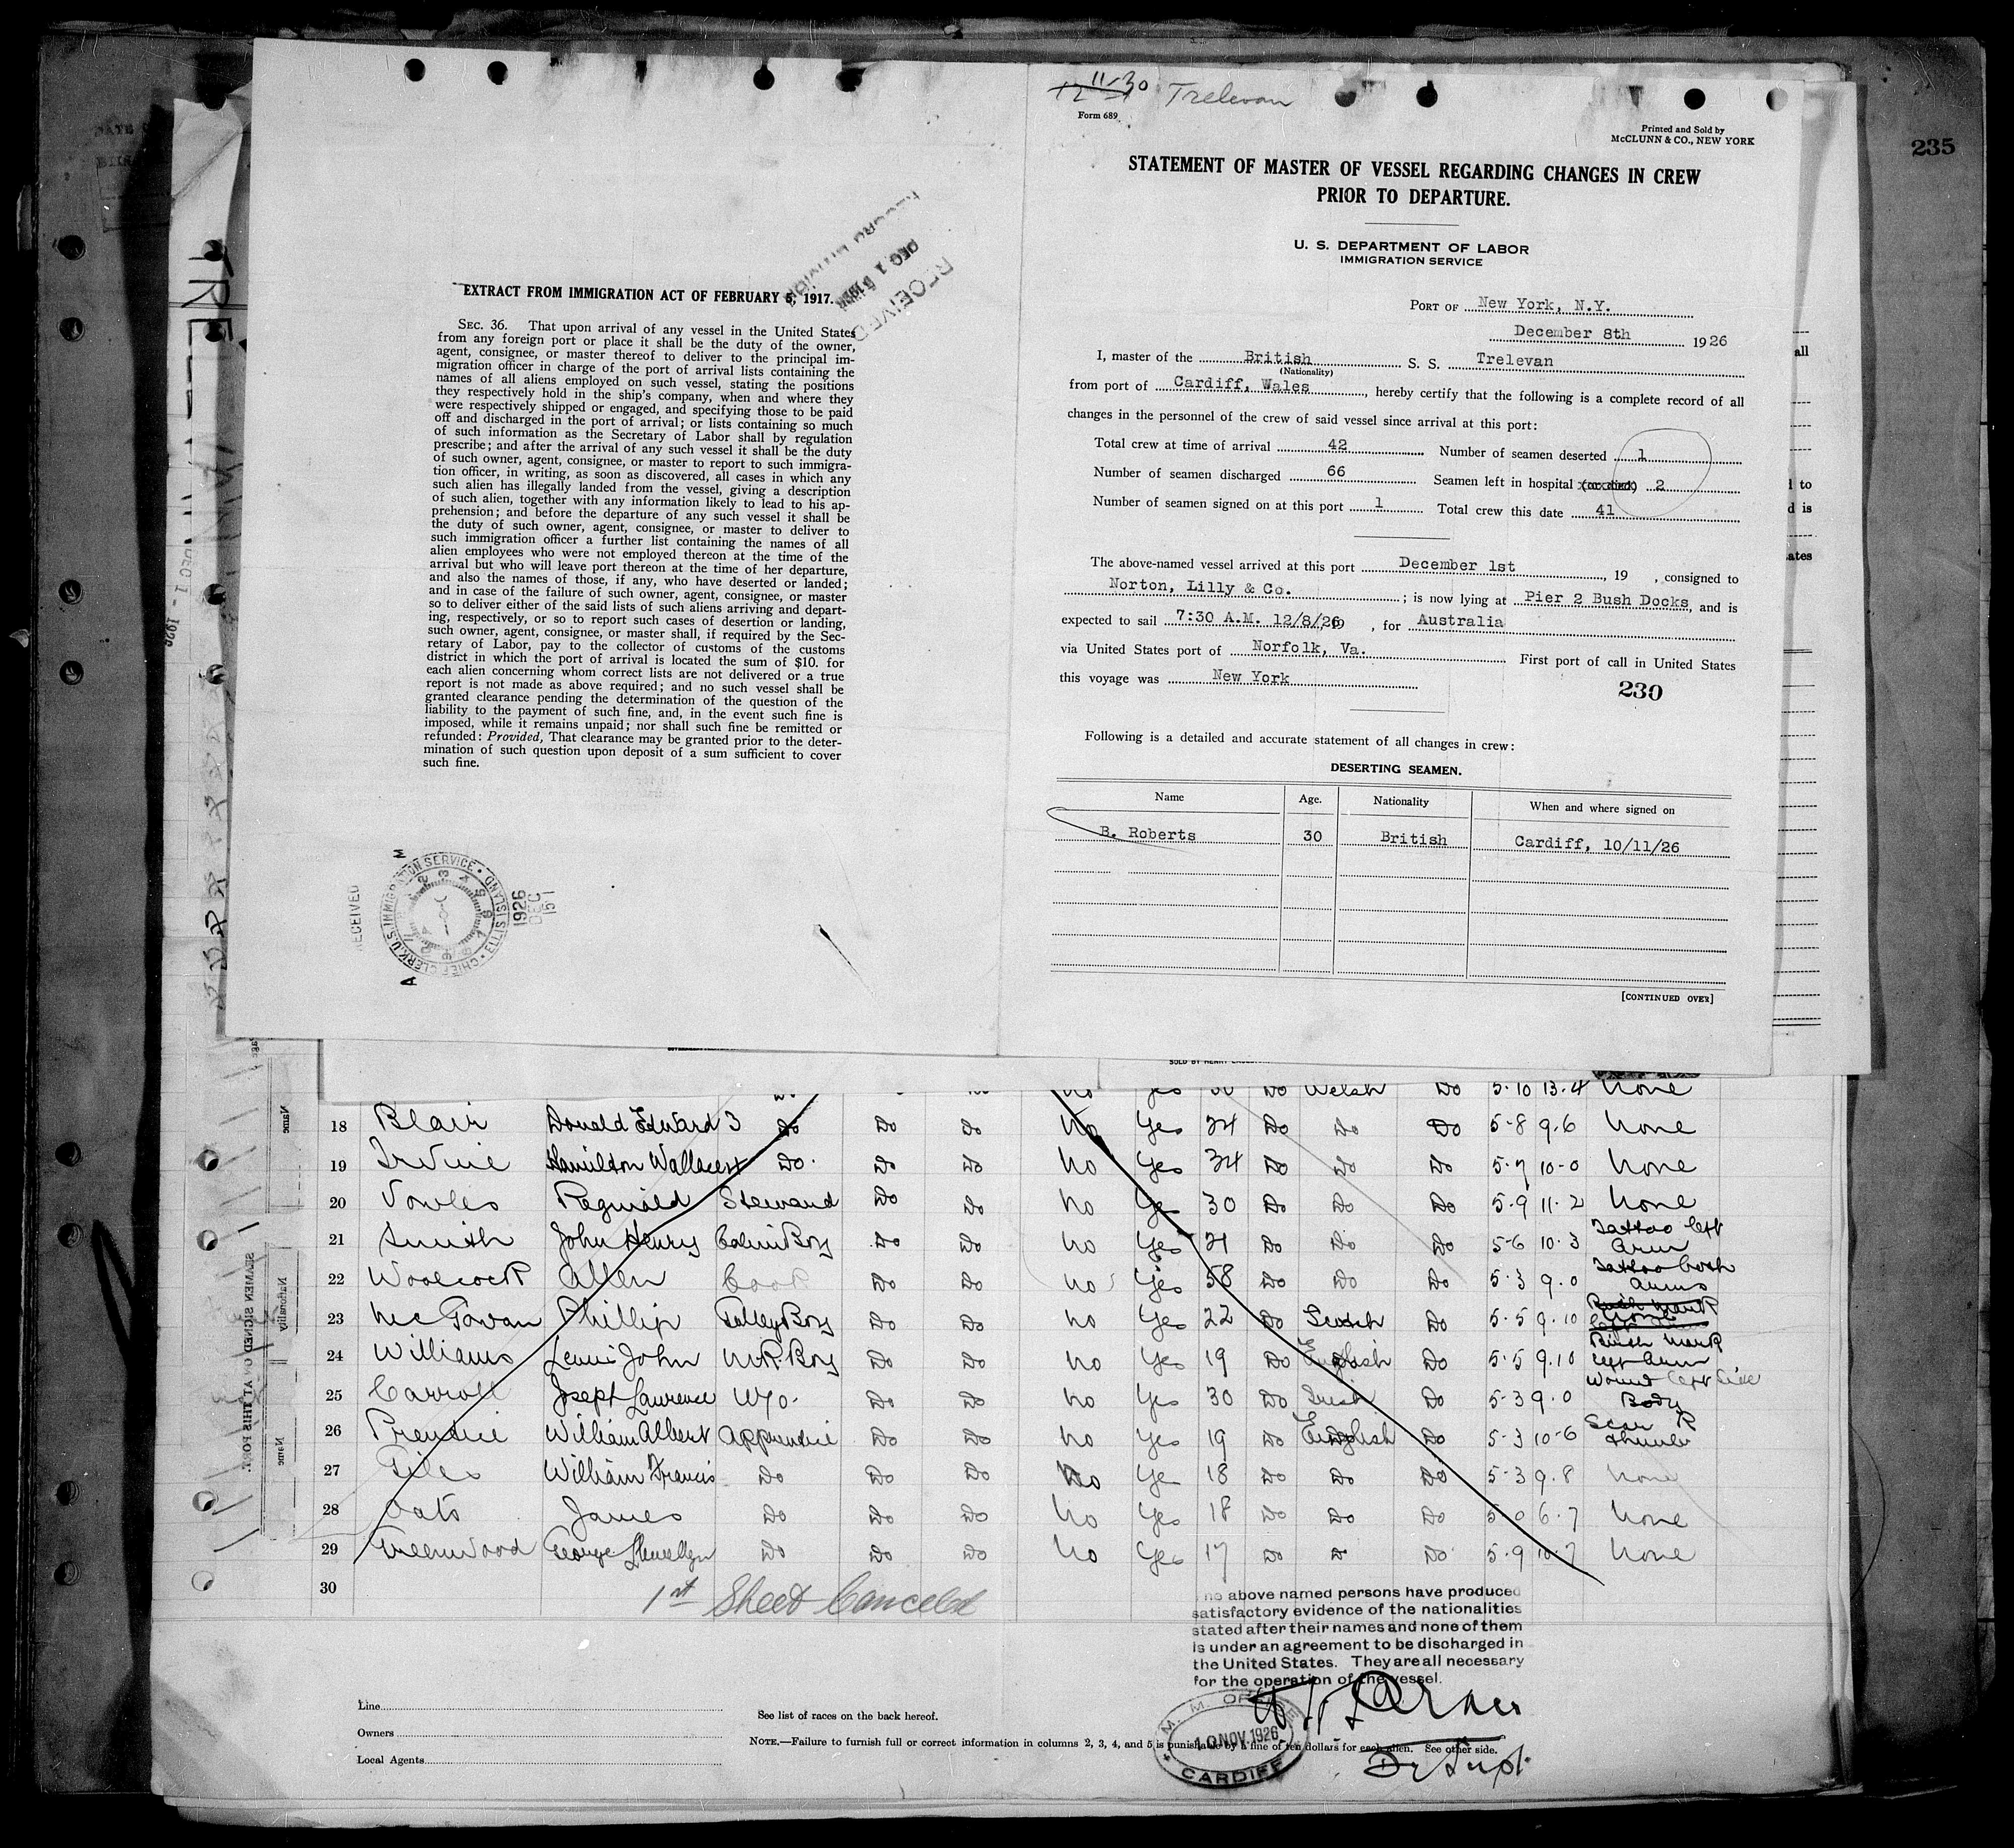 235
EXTRACT FROM IMMIGRATION ACT OF FEBRUARY 5, 1917.
SEC. 36. That upon arrival of any vessel in the United States
from any foreign port or place it shall be the duty of the owner,
agent, consignee, or master thereof to deliver to the principal im-
migration officer in charge of the port of arrival lists containing the
names of all aliens employed on such vessel, stating the positions
they respectively hold in the ship's company, when and where they
were respectively shipped or engaged, and specifying those to be paid
off and discharged in the port of arrival; or lists containing so much
of such information as the Secretary of Labor shall by regulation
prescribe; and after the arrival of any such vessel it shall be the duty
of such owner, agent, consignee, or master to report to such immigra-
tion officer, in writing, as soon as discovered, all cases in which any
such alien has illegally landed from the vessel, giving a description
of such alien, together with any information likely to lead to his ap-
prehension; and before the departure of any such vessel it shall be
the duty of such owner, agent, consignee, or master to deliver to
such immigration officer a further list containing the names of all
alien employees who were not employed thereon at the time of the
arrival but who will leave port thereon at the time of her departure,
and also the names of those, if any, who have deserted or landed;
and in case of the failure of such owner, agent, consignee, or master
so to deliver either of the said lists of such aliens arriving and depart-
ing, respectively, or so to report such cases of desertion or landing,
such owner, agent, consignee, or master shall, if required by the Sec-
retary of Labor, pay to the collector of customs of the customs
district in which the port of arrival is located the sum of $10. for
each alien concerning whom correct lists are not delivered or a true
report is not made as above required; and no such vessel shall be
granted clearance pending the determination of the question of the
liability to the payment of such fine, and, in the event such fine is
imposed, while it remains unpaid; nor shall such fine be remitted or
refunded: Provided, That clearance may be granted prior to the deter-
mination of such question upon deposit of a sum sufficient to cover
such fine.
RECEIVED
DEC 1 1926
RECORD DIVISION
RECEIVED
CHIEF CLERK, U.S. IMMIGRATION SERVICE • ELLIS ISLAND
1926 DEC 15
A M
11-30 Trelevan
Form 689
Printed and Sold by
McCLUNN & CO., NEW YORK
STATEMENT OF MASTER OF VESSEL REGARDING CHANGES IN CREW
PRIOR TO DEPARTURE.
U. S. DEPARTMENT OF LABOR
IMMIGRATION SERVICE
PORT OF New York, N.Y.
December 8th 1926
I, master of the British S. S. Trelevan
(Nationality)
from port of Cardiff, Wales, hereby certify that the following is a complete record of all
changes in the personnel of the crew of said vessel since arrival at this port:
Total crew at time of arrival 42 Number of seamen deserted 1
Number of seamen discharged 66 Seamen left in hospital (or died) 2
Number of seamen signed on at this port 1 Total crew this date 41
The above-named vessel arrived at this port December 1st, 19 , consigned to
Norton, Lilly & Co. ; is now lying at Pier 2 Bush Docks, and is
expected to sail 7:30 A.M. 12/8/26 19 , for Australia
via United States port of Norfolk, Va. First port of call in United States
this voyage was New York
230
Following is a detailed and accurate statement of all changes in crew:
DESERTING SEAMEN.
Name Age. Nationality When and where signed on
B. Roberts 30 British Cardiff, 10/11/26
[CONTINUED OVER]
no yes 30 Do Welsh Do 5-10 13.4 None
18 Blair Donald Edward 3 Do Do Do No Yes 24 Do Do Do 5-8 9.6 None
19 Irvine Hamilton Wallace Do Do Do No Yes 34 Do Do Do 5-7 10-0 None
20 Vowles Reginald Steward Do Do No Yes 30 Do Do Do 5-9 11.2 None
21 Smith John Henry Cabin Boy Do Do No Yes 21 Do Do Do 5-6 10.3 Tattoo left arm
22 Woolcock Allen Cook Do Do No Yes 58 Do Do Do 5.3 9.0 Tattoo both arms
23 McGowan Phillip Galley Boy Do Do No Yes 22 Do Scotch Do 5-5 9.10 None
24 Williams Lewis John M.R. Boy Do Do No Yes 19 Do English Do 5-5 9.10 Birth mark left arm
25 Carroll Joseph Laurence W/o Do Do No Yes 30 Do Irish Do 5-3 9.0 Wound left side Body
26 Prentice William Albert Apprentice Do Do No Yes 19 Do English Do 5-3 10-6 Scar R thumb
27 Giles William Francis Do Do Do No Yes 18 Do Do Do 5-3 9.8 None
28 Oats James Do Do Do No Yes 18 Do Do Do 5 0 6.7 None
29 Greenwood George Llewellyn Do Do Do No Yes 17 Do Do Do 5-9 10.7 None
30
1st Sheet Canceled
The above named persons have produced
satisfactory evidence of the nationalities
stated after their names and none of them
is under an agreement to be discharged in
the United States. They are all necessary
for the operation of the vessel.
Line
Owners
Local Agents
See list of races on the back hereof.
NOTE.—Failure to furnish full or correct information in columns 2, 3, 4, and 5 is punishable by a fine of ten dollars for each alien. See other side.
M. M. OFFICE
10 NOV. 1926
CARDIFF
Dy Supt
SEAMEN SIGNED ON AT THIS PORT.
Name
Nationality
Name